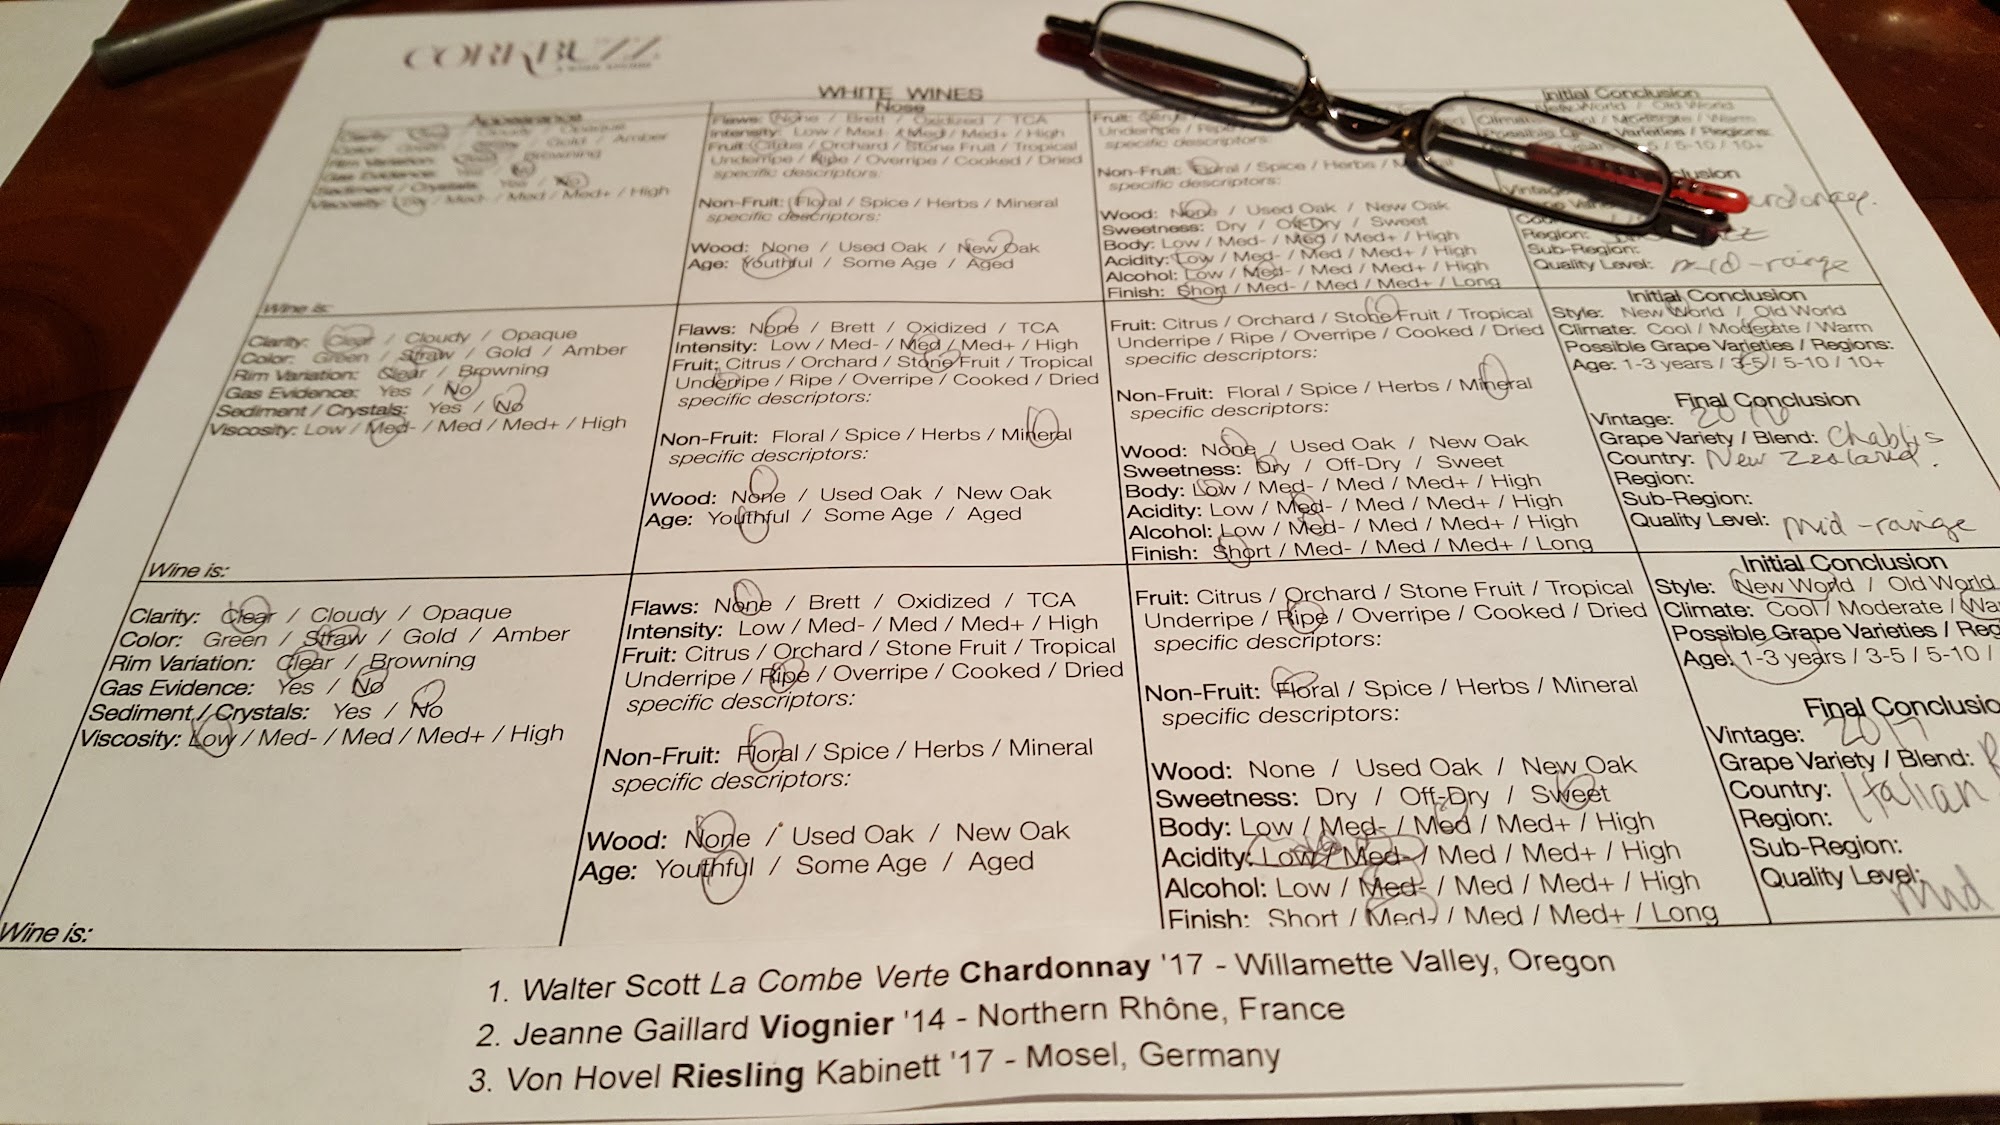 CORKBUZZ
WHITE WINES
Appearance
Clarity: Clear / Cloudy / Opaque
Color: Green / Straw / Gold / Amber
Rim Variation: Clear / Browning
Gas Evidence: Yes / No
Sediment / Crystals: Yes / No
Viscosity: Low / Med- / Med / Med+ / High
Wine is:
Nose
Flaws: None / Brett / Oxidized / TCA
Intensity: Low / Med- / Med / Med+ / High
Fruit: Citrus / Orchard / Stone Fruit / Tropical
Underripe / Ripe / Overripe / Cooked / Dried
specific descriptors:
Non-Fruit: Floral / Spice / Herbs / Mineral
specific descriptors:
Wood: None / Used Oak / New Oak
Age: Youthful / Some Age / Aged
Fruit: Citrus
Underripe / Ripe
specific descriptors:
Non-Fruit: Floral / Spice / Herbs /
specific descriptors:
Wood: None / Used Oak / New Oak
Sweetness: Dry / Off-Dry / Sweet
Body: Low / Med- / Med / Med+ / High
Acidity: Low / Med- / Med / Med+ / High
Alcohol: Low / Med- / Med / Med+ / High
Finish: Short / Med- / Med / Med+ / Long
Initial Conclusion
New World / Old World
/ Moderate / Warm
Varieties / Regions:
/ 5-10 / 10+
Region:
Sub-Region:
Quality Level: mid-range
Clarity: Clear / Cloudy / Opaque
Color: Green / Straw / Gold / Amber
Rim Variation: Clear / Browning
Gas Evidence: Yes / No
Sediment / Crystals: Yes / No
Viscosity: Low / Med- / Med / Med+ / High
Wine is:
Flaws: None / Brett / Oxidized / TCA
Intensity: Low / Med- / Med / Med+ / High
Fruit: Citrus / Orchard / Stone Fruit / Tropical
Underripe / Ripe / Overripe / Cooked / Dried
specific descriptors:
Non-Fruit: Floral / Spice / Herbs / Mineral
specific descriptors:
Wood: None / Used Oak / New Oak
Age: Youthful / Some Age / Aged
Fruit: Citrus / Orchard / Stone Fruit / Tropical
Underripe / Ripe / Overripe / Cooked / Dried
specific descriptors:
Non-Fruit: Floral / Spice / Herbs / Mineral
specific descriptors:
Wood: None / Used Oak / New Oak
Sweetness: Dry / Off-Dry / Sweet
Body: Low / Med- / Med / Med+ / High
Acidity: Low / Med- / Med / Med+ / High
Alcohol: Low / Med- / Med / Med+ / High
Finish: Short / Med- / Med / Med+ / Long
Initial Conclusion
Style: New World / Old World
Climate: Cool / Moderate / Warm
Possible Grape Varieties / Regions:
Age: 1-3 years / 3-5 / 5-10 / 10+
Final Conclusion
Vintage:
Grape Variety / Blend: Chablis
Country: New Zealand.
Region:
Sub-Region:
Quality Level: mid-range
Clarity: Clear / Cloudy / Opaque
Color: Green / Straw / Gold / Amber
Rim Variation: Clear / Browning
Gas Evidence: Yes / No
Sediment / Crystals: Yes / No
Viscosity: Low / Med- / Med / Med+ / High
Wine is:
Flaws: None / Brett / Oxidized / TCA
Intensity: Low / Med- / Med / Med+ / High
Fruit: Citrus / Orchard / Stone Fruit / Tropical
Underripe / Ripe / Overripe / Cooked / Dried
specific descriptors:
Non-Fruit: Floral / Spice / Herbs / Mineral
specific descriptors:
Wood: None / Used Oak / New Oak
Age: Youthful / Some Age / Aged
Fruit: Citrus / Orchard / Stone Fruit / Tropical
Underripe / Ripe / Overripe / Cooked / Dried
specific descriptors:
Non-Fruit: Floral / Spice / Herbs / Mineral
specific descriptors:
Wood: None / Used Oak / New Oak
Sweetness: Dry / Off-Dry / Sweet
Body: Low / Med- / Med / Med+ / High
Acidity: Low / Med- / Med / Med+ / High
Alcohol: Low / Med- / Med / Med+ / High
Finish: Short / Med- / Med / Med+ / Long
Initial Conclusion
Style: New World / Old World
Climate: Cool / Moderate / Wa
Possible Grape Varieties / Reg
Age: 1-3 years / 3-5 / 5-10 /
Final Conclusio
Vintage: 2017
Grape Variety / Blend:
Country: Italian
Region:
Sub-Region:
Quality Level: mid
1. Walter Scott La Combe Verte Chardonnay '17 - Willamette Valley, Oregon
2. Jeanne Gaillard Viognier '14 - Northern Rhône, France
3. Von Hovel Riesling Kabinett '17 - Mosel, Germany